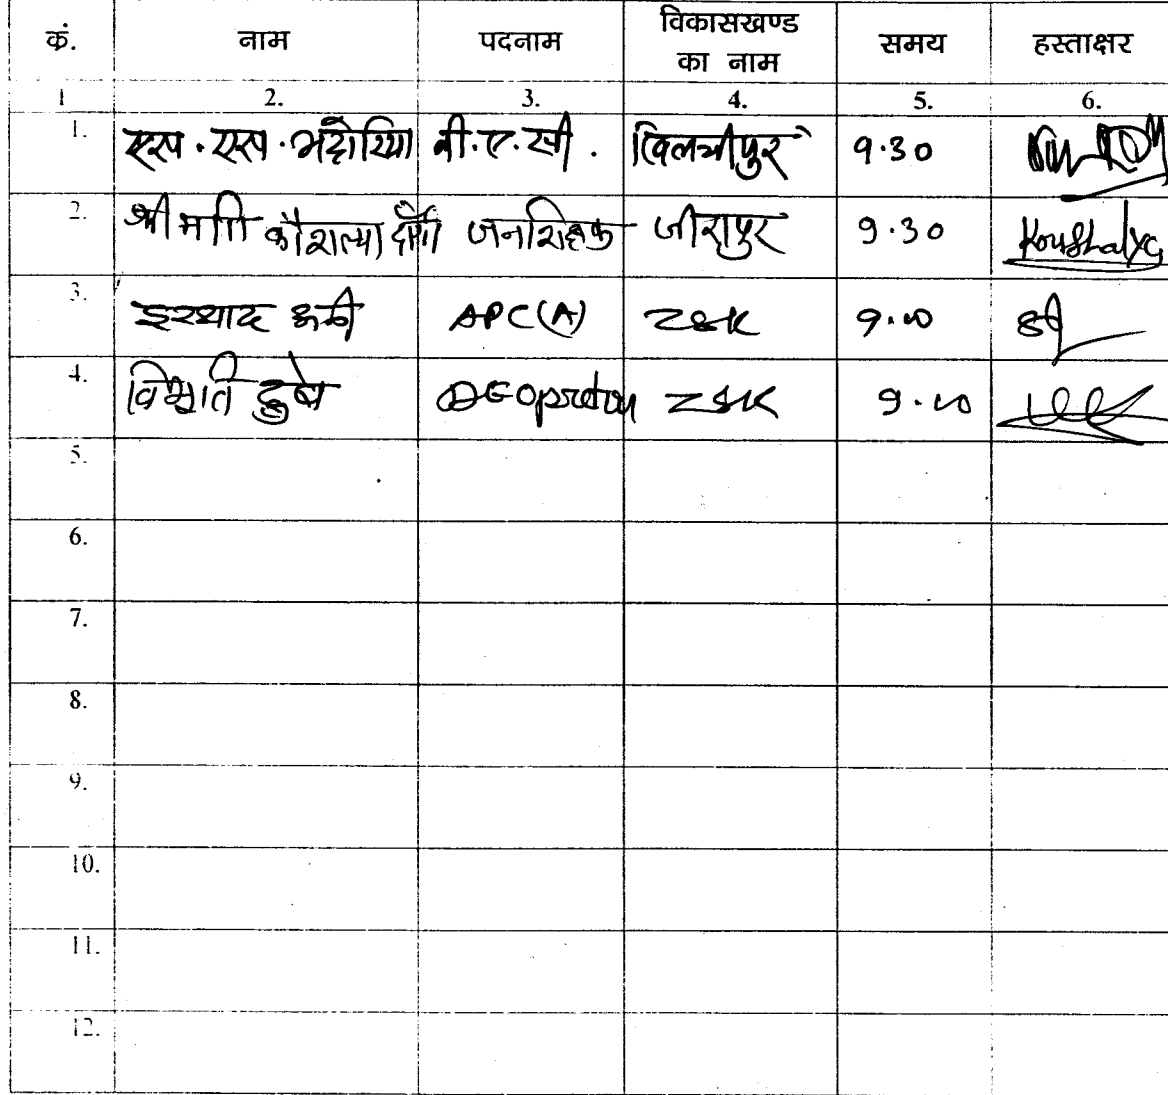 कं. नाम पदनाम विकासखण्ड का नाम समय हस्ताक्षर
1 2. 3. 4. 5. 6.
1. एस. एस. भदोरिया बी.ए.सी. खिलचीपुर 9.30
2. श्रीमति कौशल्या जनशिक्षक जीरापुर 9.30 Koushalya
3. इरशाद अली APC(A) ZSK 9.00
4. विभूति दुबे ZSK 9.00
5.
6.
7.
8.
9.
10.
11.
12.